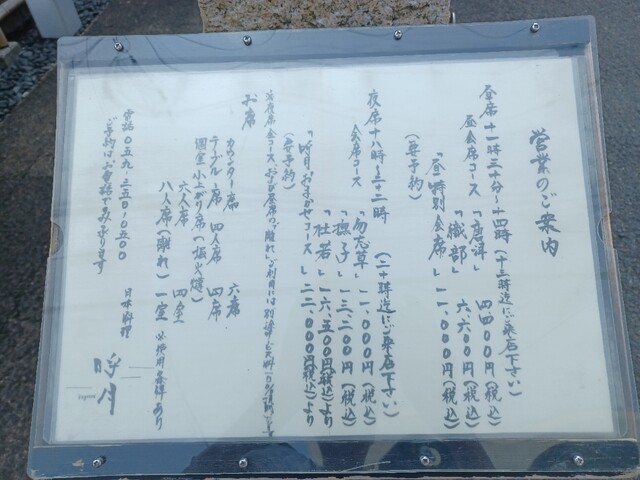 営業のご案内
昼席 十一時三十分〜十四時(十三時迄にご来店下さい)
昼会席コース 「唐津」 四四〇〇円(税込)
「織部」 六六〇〇円(税込)
「昼特別会席」 一一、〇〇〇円(税込)
(要予約)
夜席 十八時〜二十二時 (二十時迄にご来店下さい)
会席コース 「勿忘草」 一一、〇〇〇円(税込)
「撫子」 一三、二〇〇円(税込)
「杜若」 一六、五〇〇円(税込)
「吟月おまかせコース」 二二、〇〇〇円(税込)より
(要予約)
お席
カウンター席 六席
テーブル席 四人席 四席
個室 小上がり席(掘火燵)
六人席 四室
八人席(離れ) 一室 ※使用条件あり
ご予約はお電話でも承ります
電話〇五九-三五〇-〇五〇〇
日本料理
吟月